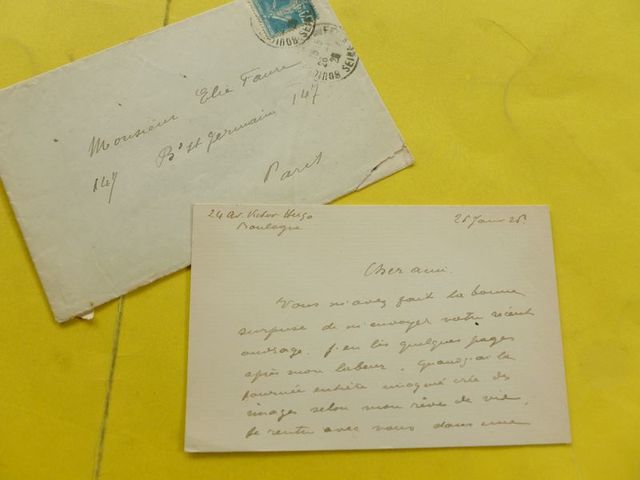 BOULOGNE SEINE
Monsieur Elie Faure
147 Bd St Germain 147
Paris
24 Av. Victor Hugo
Boulogne
26 Janv 26.
Cher ami.
Vous m'avez fait la bonne
surprise de m'envoyer votre récent
ouvrage. J'en lis quelques pages
après mon labeur. Quand j'ai la
journée entière imaginé crée des
images selon mon rêve de vie,
je rentre avec vous dans une